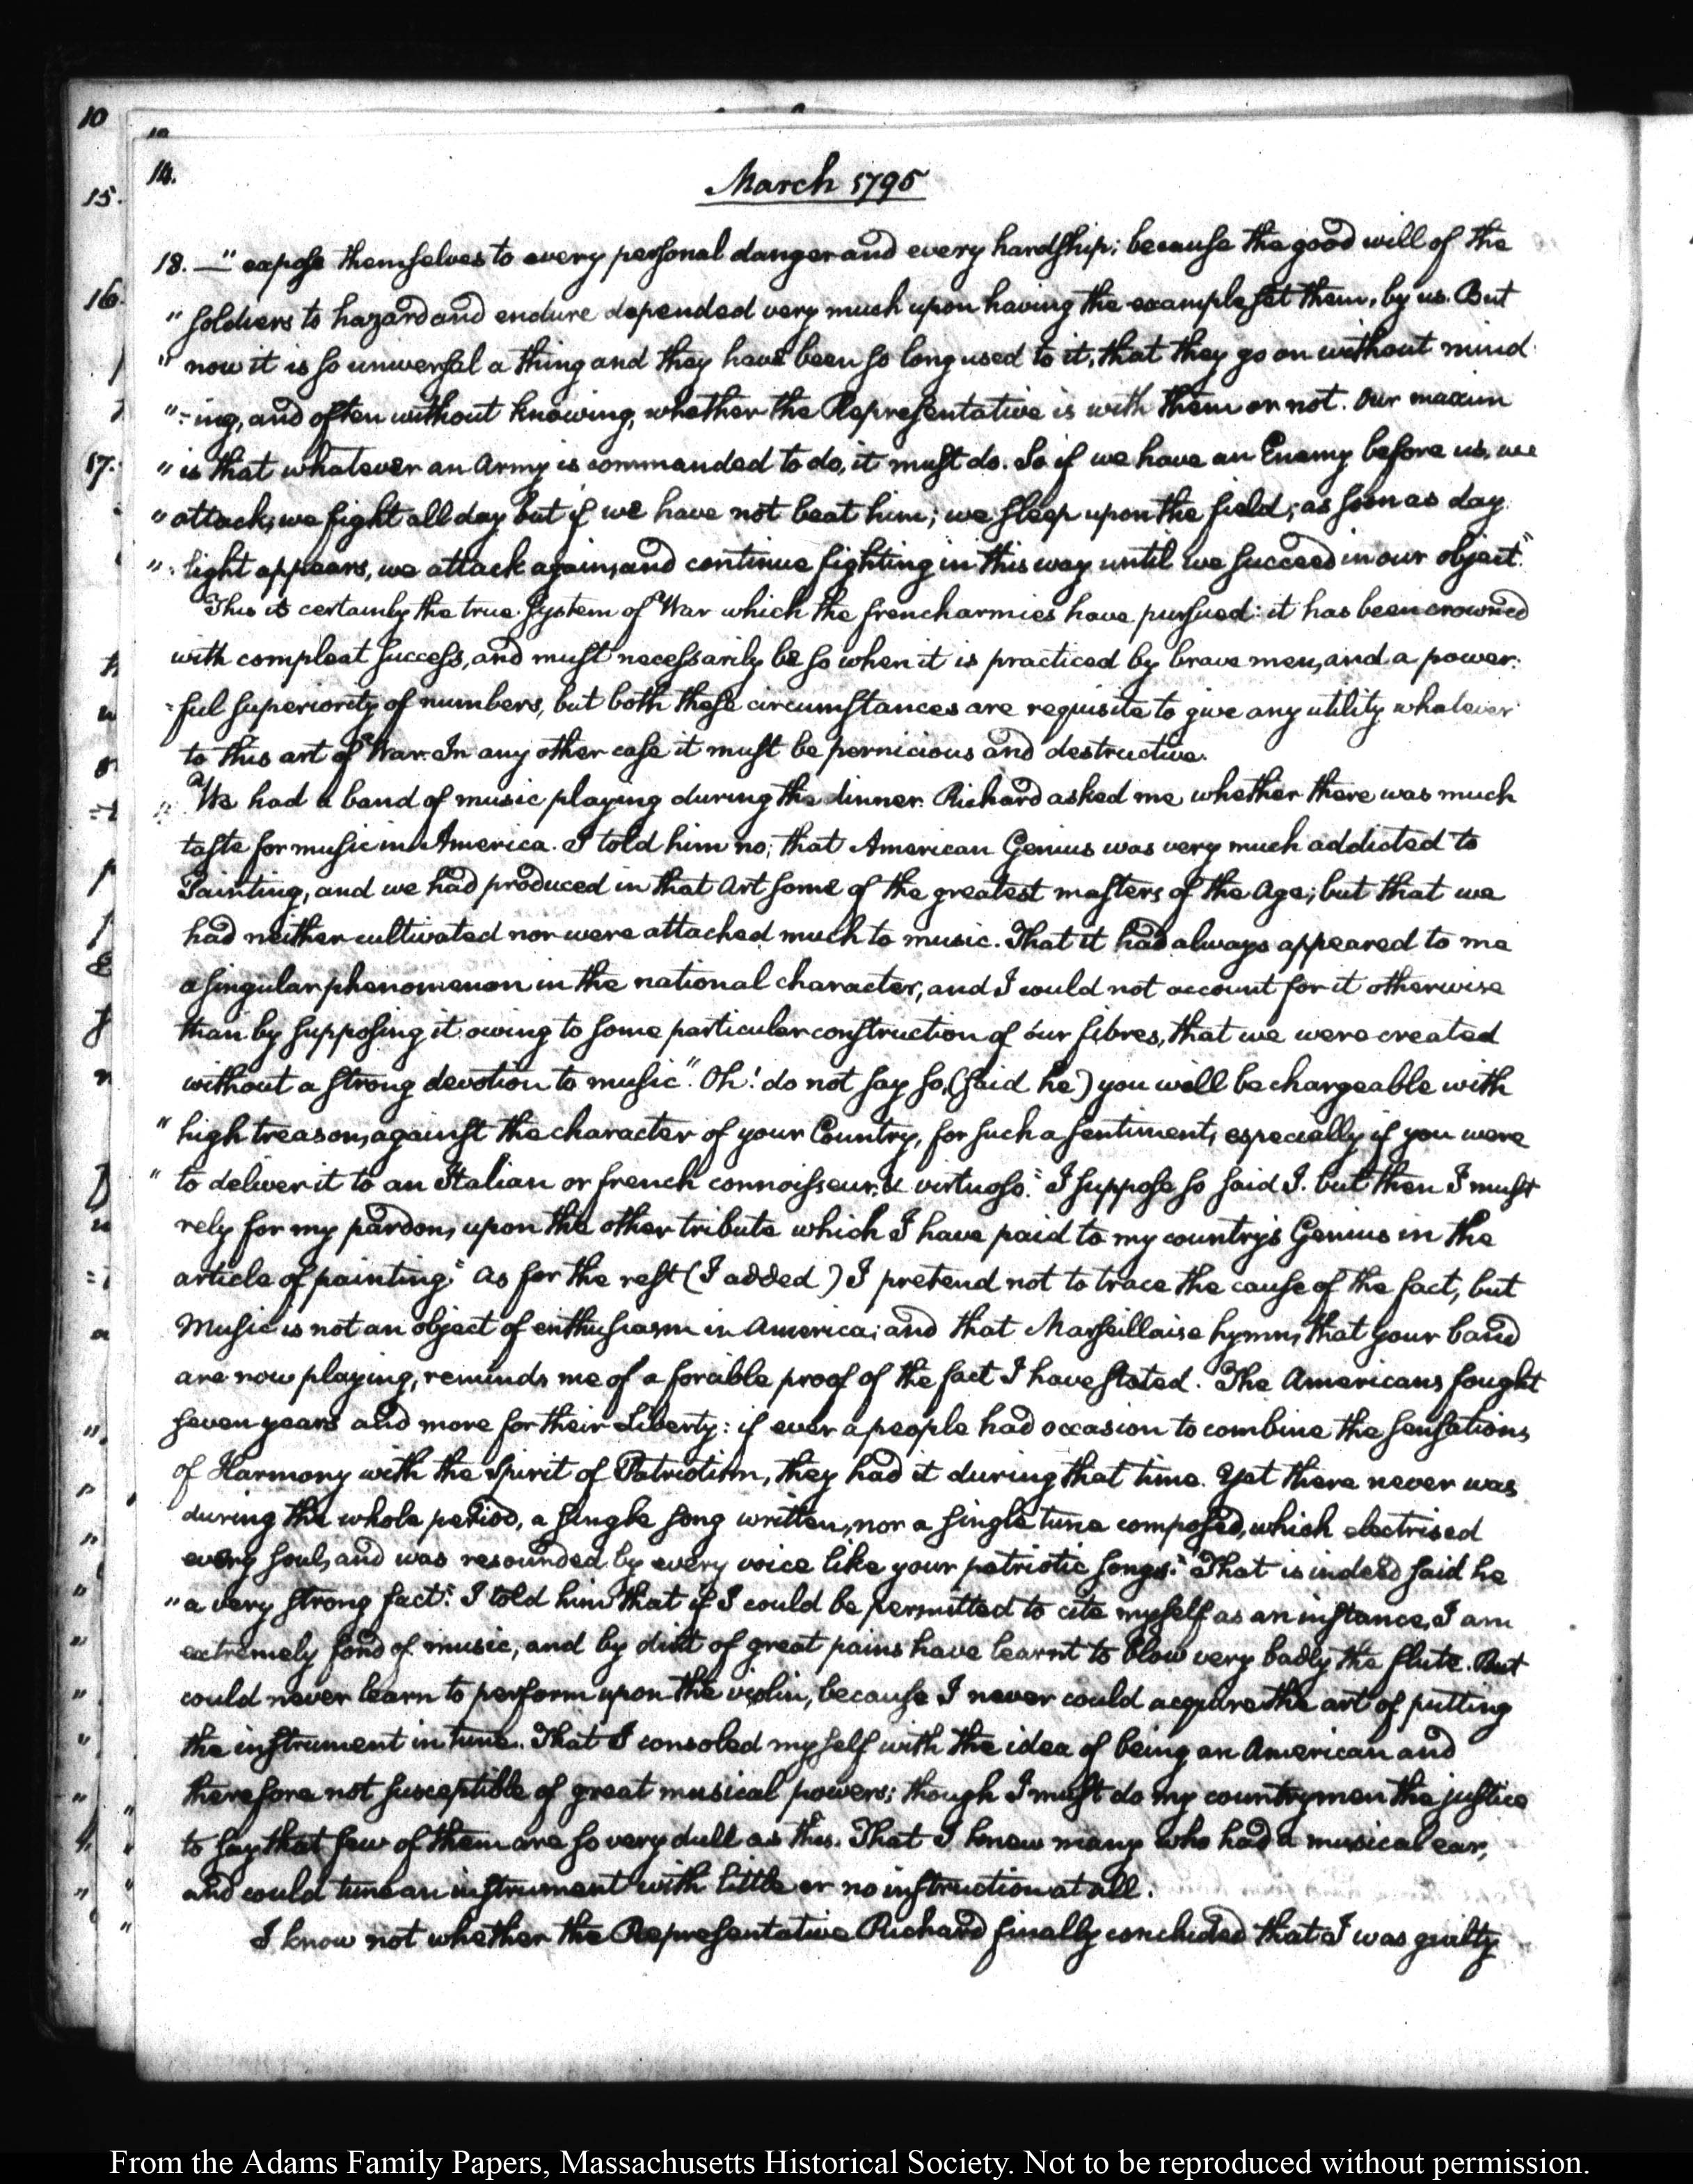 10
15.
16.
17.
14.
March 1795
18. —" expose themselves to every personal danger and every hardship; because the good will of the
" soldiers to hazard and endure depended very much upon having the example set them, by us. But
" now it is so universal a thing and they have been so long used to it, that they go on without mind
"-ing, and often without knowing, whether the Representative is with them or not. Our maxim
" is that whatever an Army is commanded to do, it must do. So if we have an Enemy before us, we
" attack; we fight all day but if we have not beat him; we sleep upon the field; as soon as day
"-light appears, we attack again, and continue fighting in this way until we succeed in our object."
This is certainly the true System of War which the french armies have pursued: it has been crowned
with compleat success, and must necessarily be so when it is practiced by brave men, and a power-
-ful superiority of numbers, but both these circumstances are requisite to give any utility whatever
to this art of War. In any other case it must be pernicious and destructive.
We had a band of music playing during the dinner. Richard asked me whether there was much
taste for music in America. I told him no; that American Genius was very much addicted to
Painting, and we had produced in that Art some of the greatest masters of the Age; but that we
had neither cultivated nor were attached much to music. That it had always appeared to me
a singular phenomenon in the national character, and I could not account for it otherwise
than by supposing it owing to some particular construction of our fibres, that we were created
without a strong devotion to music". Oh! do not say so, (said he) you will be chargeable with
" high treason, against the character of your Country, for such a sentiment, especially if you were
" to deliver it to an Italian or french connoisseur, & virtuoso." I suppose so said I. but then I must
rely for my pardon, upon the other tribute which I have paid to my country's Genius in the
article of painting." As for the rest (I added) I pretend not to trace the cause of the fact, but
Music is not an object of enthusiasm in America; and that Marseillaise hymn, that your band
are now playing, reminds me of a forcible proof of the fact I have stated. The Americans fought
seven years and more for their Liberty: if ever a people had occasion to combine the sensations
of Harmony with the spirit of Patriotism, they had it during that time. Yet there never was
during the whole period, a single song written, nor a single tune composed, which electrised
every soul, and was resounded by every voice like your patriotic songs." "That is indeed said he
" a very strong fact". I told him that if I could be permitted to cite myself as an instance, I am
extremely fond of music, and by dint of great pains have learnt to blow very badly the flute. But
could never learn to perform upon the violin, because I never could acquire the art of putting
the instrument in tune. That I consoled myself with the idea of being an American and
therefore not susceptible of great musical powers; though I must do my countrymen the justice
to say that few of them are so very dull as this. That I knew many who had a musical ear,
and could tune an instrument with little or no instruction at all.
I know not whether the Representative Richard finally concluded that I was guilty
From the Adams Family Papers, Massachusetts Historical Society. Not to be reproduced without permission.